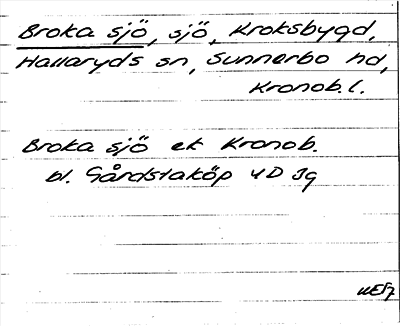 Broka sjö, sjö, Kroksbygd,
Hallaryds sn, Sunnerbo hd,
Kronob. l.
Broka sjö ek Kronob.
bl. Gårdstaköp 4D Jg